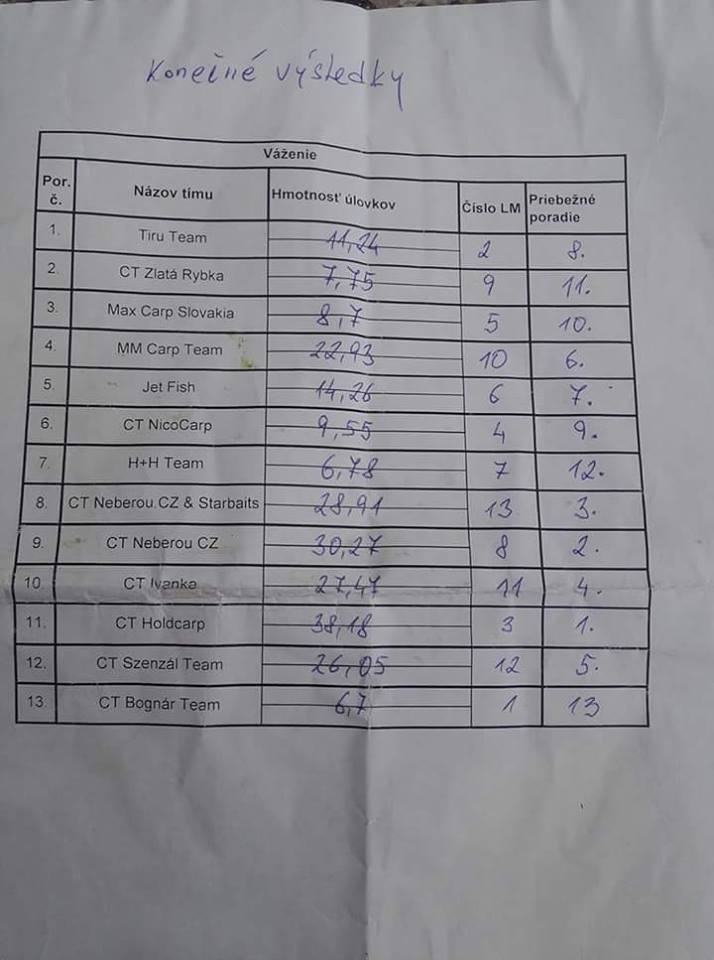 Konečné výsledky
Váženie
Por. č. Názov tímu Hmotnosť úlovkov Číslo LM Priebežné poradie
1. Tiru Team 11,24 2 8.
2. CT Zlatá Rybka 7,75 9 11.
3. Max Carp Slovakia 8,7 5 10.
4. MM Carp Team 22,93 10 6.
5. Jet Fish 14,26 6 7.
6. CT NicoCarp 9,55 4 9.
7. H+H Team 6,78 7 12.
8. CT Neberou.CZ & Starbaits 28,91 13 3.
9. CT Neberou CZ 30,27 8 2.
10. CT Ivanka 27,47 11 4.
11. CT Holdcarp 38,18 3 1.
12. CT Szenzál Team 26,05 12 5.
13. CT Bognár Team 6,7 1 13